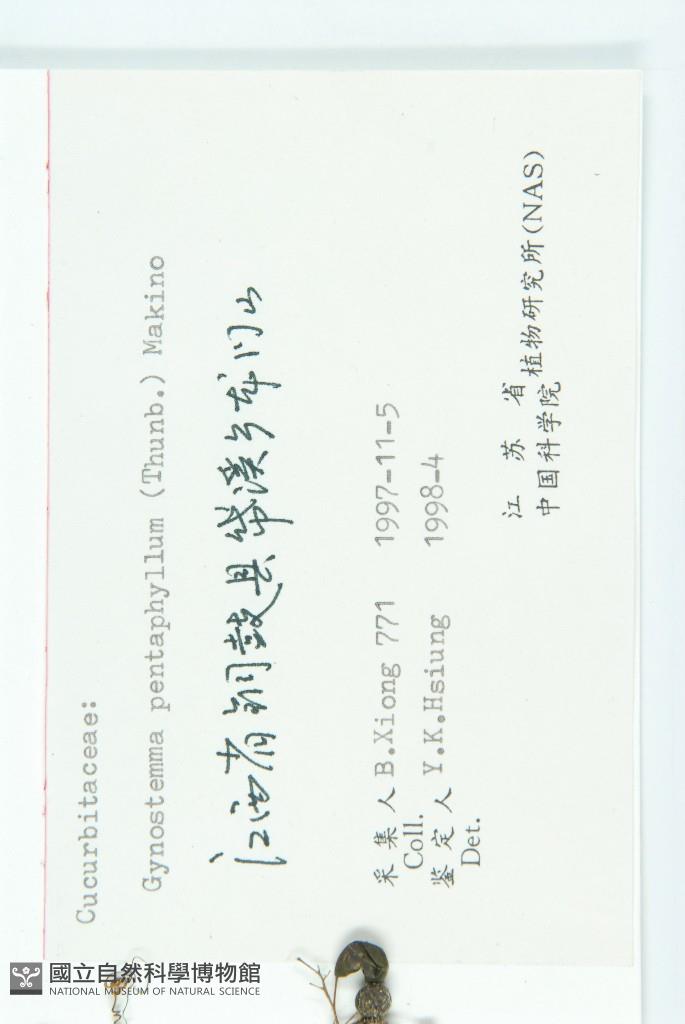 Cucurbitaceae:
Gynostemma pentaphyllum (Thunb.) Makino
江西省铜鼓县带溪乡龙门山
采集人 B.Xiong 771 1997-11-5
Coll.
鉴定人 Y.K.Hsiung 1998-4
Det.
江苏省
中国科学院植物研究所(NAS)
國立自然科學博物館
NATIONAL MUSEUM OF NATURAL SCIENCE